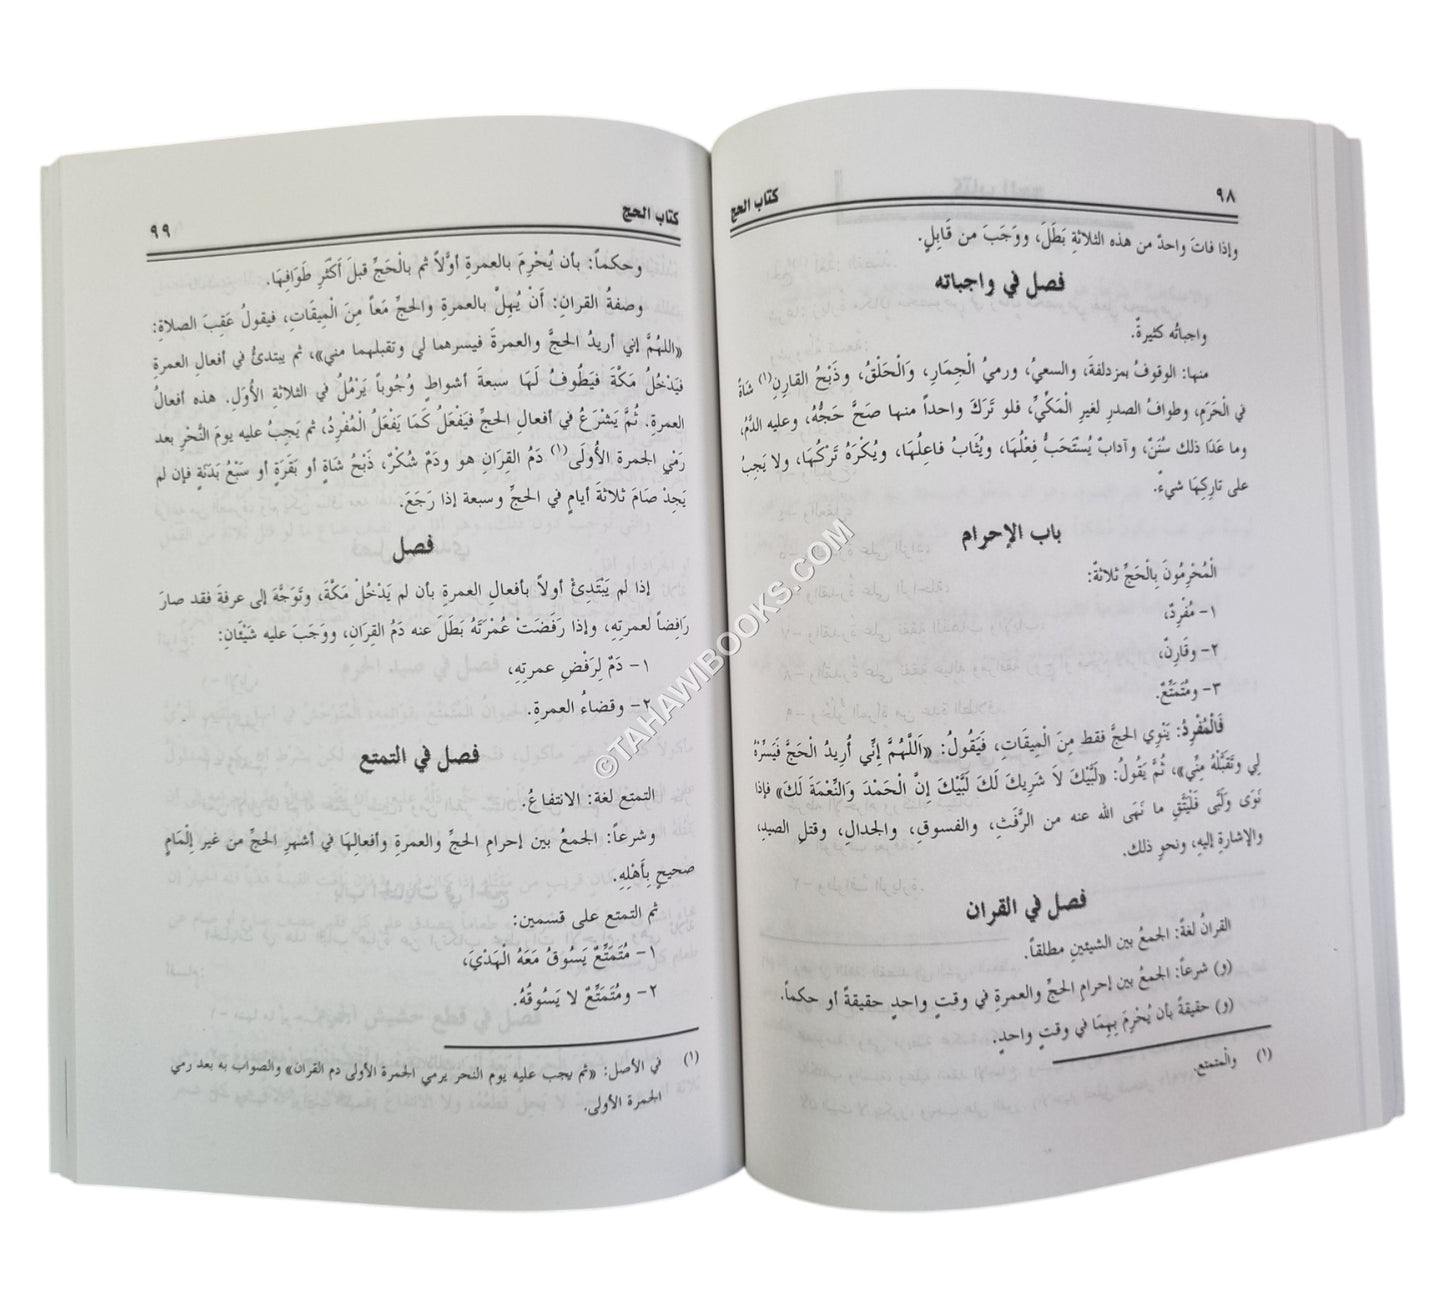 ٩٨
كتاب الحج
وإذا فاتَ واحدٌ من هذه الثلاثةِ بَطَلَ، ووَجَبَ من قَابِلٍ.
فصل في واجباته
واجباتُه كثيرةٌ.
منها: الوقوفُ بمزدلفةَ، والسعيُ، ورميُ الْجِمَارِ، وَالْحَلْقُ، وذَبْحُ القارِنِ(١) شَاةً
في الْحَرَمِ، وطوافُ الصدرِ لغيرِ الْمَكِّيِّ، فلو تَرَكَ واحداً منها صَحَّ حَجُّهُ، وعليه الدَّمُ،
وما عَدَا ذلك سُنَنٌ، وآدابٌ يُستَحَبُّ فِعْلُهَا، ويُثَابُ فاعِلُهَا، ويُكْرَهُ تَرْكُهَا، ولا يَجِبُ
على تارِكِهَا شيءٌ.
باب الإحرام
الْمُحْرِمُونَ بِالْحَجِّ ثلاثةٌ:
١- مُفْرِدٌ،
٢- وقَارِنٌ،
٣- ومُتَمَتِّعٌ.
فَالْمُفْرِدُ: يَنْوِي الحجَّ فقط مِنَ الْمِيقَاتِ، فَيَقُولُ: «اَللَّهُمَّ إِنِّي أُرِيدُ الْحَجَّ فَيَسِّرْهُ
لِي وتَقَبَّلْهُ مِنِّي»، ثُمَّ يَقُولُ: «لَبَّيْكَ لاَ شَرِيكَ لَكَ لَبَّيْكَ إِنَّ الْحَمْدَ وَالنِّعْمَةَ لَكَ» فإذا
نَوَى ولَبَّى فَلْيَتَّقِ ما نَهَى الله عنه من الرَّفَثِ، والفسوقِ، والجدالِ، وقتلِ الصيدِ،
والإشارةِ إليهِ، ونحوِ ذلك.
فصل في القران
القرانُ لغةً: الجمعُ بين الشيئينِ مطلقاً.
(و) شرعاً: الجمعُ بين إحرامِ الحجِّ والعمرةِ في وقتٍ واحدٍ حقيقةً أو حكماً.
(و) حقيقةً بأن يُحْرِمَ بِهِمَا في وقتٍ واحدٍ.
(١) والْمتمتع.
كتاب الحج
٩٩
وحكماً: بأن يُحْرِمَ بالعمرةِ أوَّلاً ثم بالْحَجِّ قبلَ أَكثَرِ طَوَافِهَا.
وصفةُ القرانِ: أَنْ يُهِلَّ بالعمرةِ والحجِّ مَعاً مِنَ الْمِيقَاتِ، فيقولُ عَقِبَ الصلاةِ:
«اللهُمَّ إني أريدُ الحجَّ والعمرةَ فيسرهما لي وتقبلهما مني»، ثم يبتدئُ في أفعالِ العمرةِ
فيَدْخُلُ مَكَّةَ فيَطُوفُ لَهَا سبعةَ أشواطٍ وُجُوباً يَرْمُلُ في الثلاثةِ الأُوَلِ. هذه أفعالُ
العمرةِ. ثُمَّ يَشْرَعُ في أفعالِ الحجِّ فيَفْعَلُ كَمَا يَفْعَلُ الْمُفْرِدُ، ثم يَجِبُ عليه يومَ النَّحْرِ بعد
رَمْيِ الجمرةِ الأُولَى(١) دَمُ القِرَانِ هو ودَمُ شُكْرٌ، ذَبْحُ شَاةٍ أو بَقَرَةٍ أو سَبْعُ بَدَنَةٍ فإن لم
يَجِدْ صَامَ ثلاثةَ أيامٍ في الحجِّ وسبعة إذا رَجَعَ.
فصل
إذا لم يَبْتَدِئْ أولاً بأفعالِ العمرةِ بأن لم يَدْخُلْ مَكَّةَ، وتَوَجَّهَ إلى عرفةَ فقد صارَ
رَافِضاً لعمرتِهِ، وإذا رَفَضَتْ عُمْرَتَهُ بَطَلَ عنه دَمُ القِرَانِ، ووَجَبَ عليه شَيْئَانِ:
١- دَمٌ لِرَفْضِ عمرتِهِ،
٢- وقضاءُ العمرةِ.
فصل في التمتع
التمتع لغة: الانتفاعُ.
وشرعاً: الجمعُ بين إحرامِ الحجِّ والعمرةِ وأفعالِهَا في أشهرِ الحجِّ من غير إِلْمَامٍ
صحيحٍ بِأَهْلِهِ.
ثم التمتع على قسمين:
١- مُتَمَتِّعٌ يَسُوقُ مَعَهُ الْهَدْيَ،
٢- ومُتَمَتِّعٌ لا يَسُوقُهُ.
(١) في الأصل: «ثم يجب عليه يوم النحر يرمي الجمرة الأولى دم القران» والصواب به بعد رمي
الجمرة الأولى.
©TAHAWIBOOKS.COM